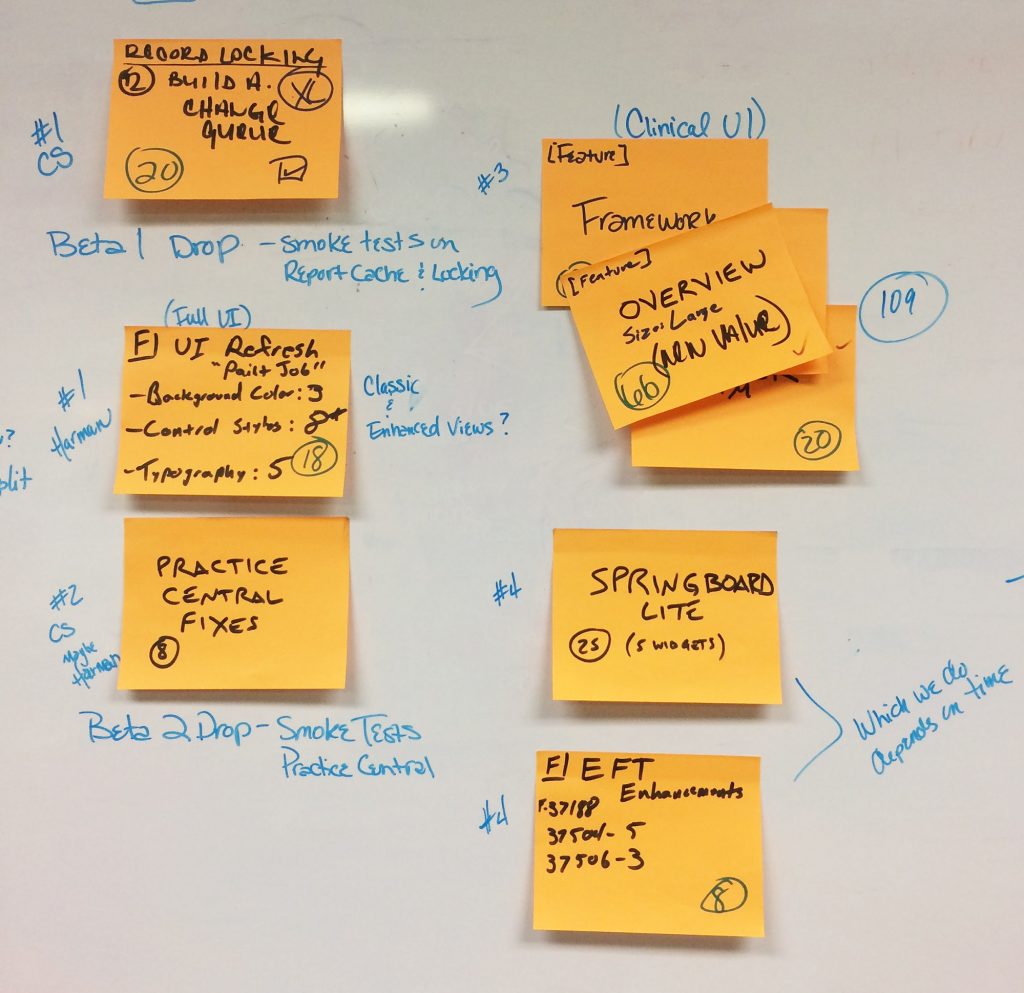 RECORD LOCKING
12 BUILD A. XL
CHANGE
QUEUE
20
#1
CS
Beta 1 Drop - Smoke tests on
Report Cache & Locking
(Full UI)
F UI Refresh
"Paint Job"
- Background Color: 3
- Control Styles: 8
- Typography: 5
18
#1
Harman
Classic
&
Enhanced Views?
?
plit
PRACTICE
CENTRAL
FIXES
8
#2
CS
Maybe
Harman
Beta 2 Drop - Smoke Tests
Practice Central
(Clinical UI)
#3
[Feature]
Framework
[Feature]
OVERVIEW
Size: Large
(NEW VALUE)
66
20
109
#4
SPRINGBOARD
LITE
25 (5 WIDGETS)
Which we do
depends on time
#4
F EFT
Enhancements
F-37188
37504 - 5
37506 - 3
8